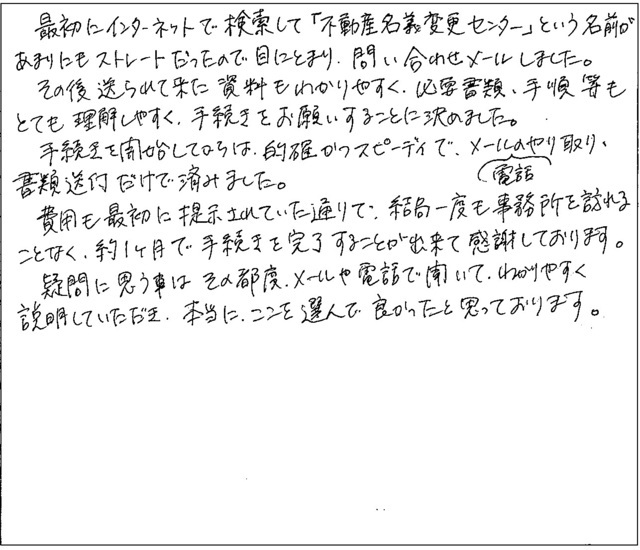 最初にインターネットで検索して「不動産名義変更センター」という名前が
あまりにもストレートだったので目にとまり、問い合わせメールしました。
その後送られて来た資料もわかりやすく、必要書類、手順等も
とても理解しやすく、手続きをお願いすることに決めました。
手続きを開始してからは、的確かつスピーディで、メールのやり取り、
電話
書類送付だけで済みました。
費用も最初に提示されていた通りで、結局一度も事務所を訪れる
ことなく、約1ヶ月で手続きを完了することが出来て感謝しております。
疑問に思う事はその都度、メールや電話で聞いて、わかりやすく
説明していただき、本当に、ここを選んで良かったと思っております。